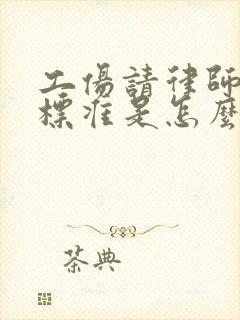 工傷請律師
標准是怎麼
茶典